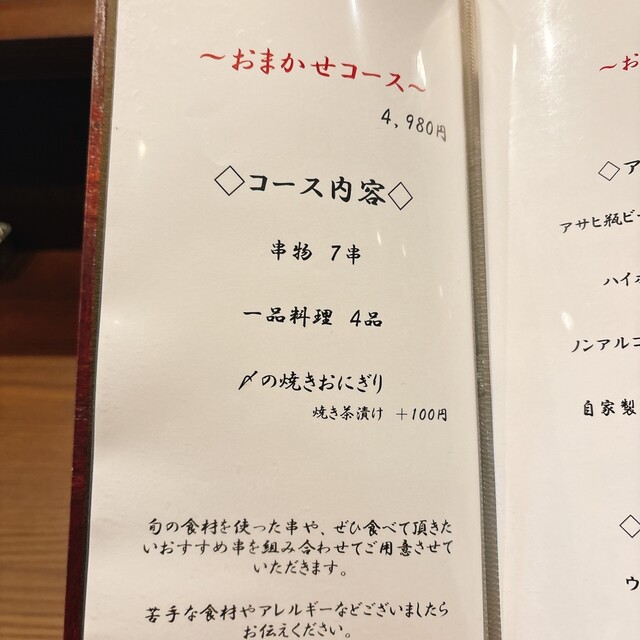 ～おまかせコース～
4,980円
◇コース内容◇
串物 7串
一品料理 4品
〆の焼きおにぎり
焼き茶漬け +100円
旬の食材を使った串や、ぜひ食べて頂きた
いおすすめ串を組み合わせてご用意させて
いただきます。
苦手な食材やアレルギーなどございましたら
お伝えください。
～お
◇ア
アサヒ瓶ビー
ハイボ
ノンアルコ
自家製
◇
ウ